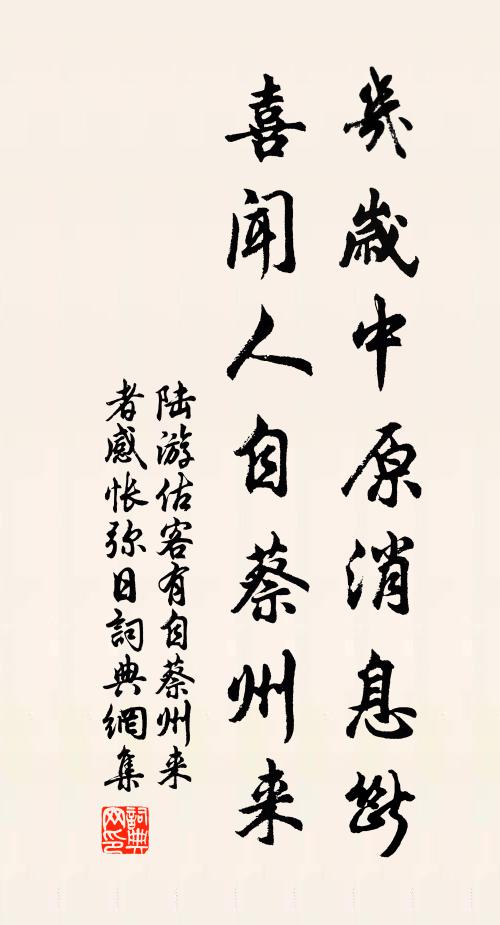 幾歲中原消息斷
喜聞人自蔡州来
陆游估客有自蔡州来
者感怅弥日詞典網集
詞典網印